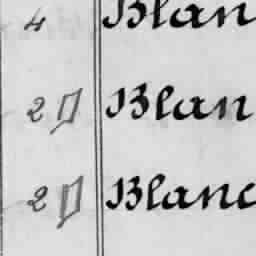 4 Blan
2 Blan
2 Blanc